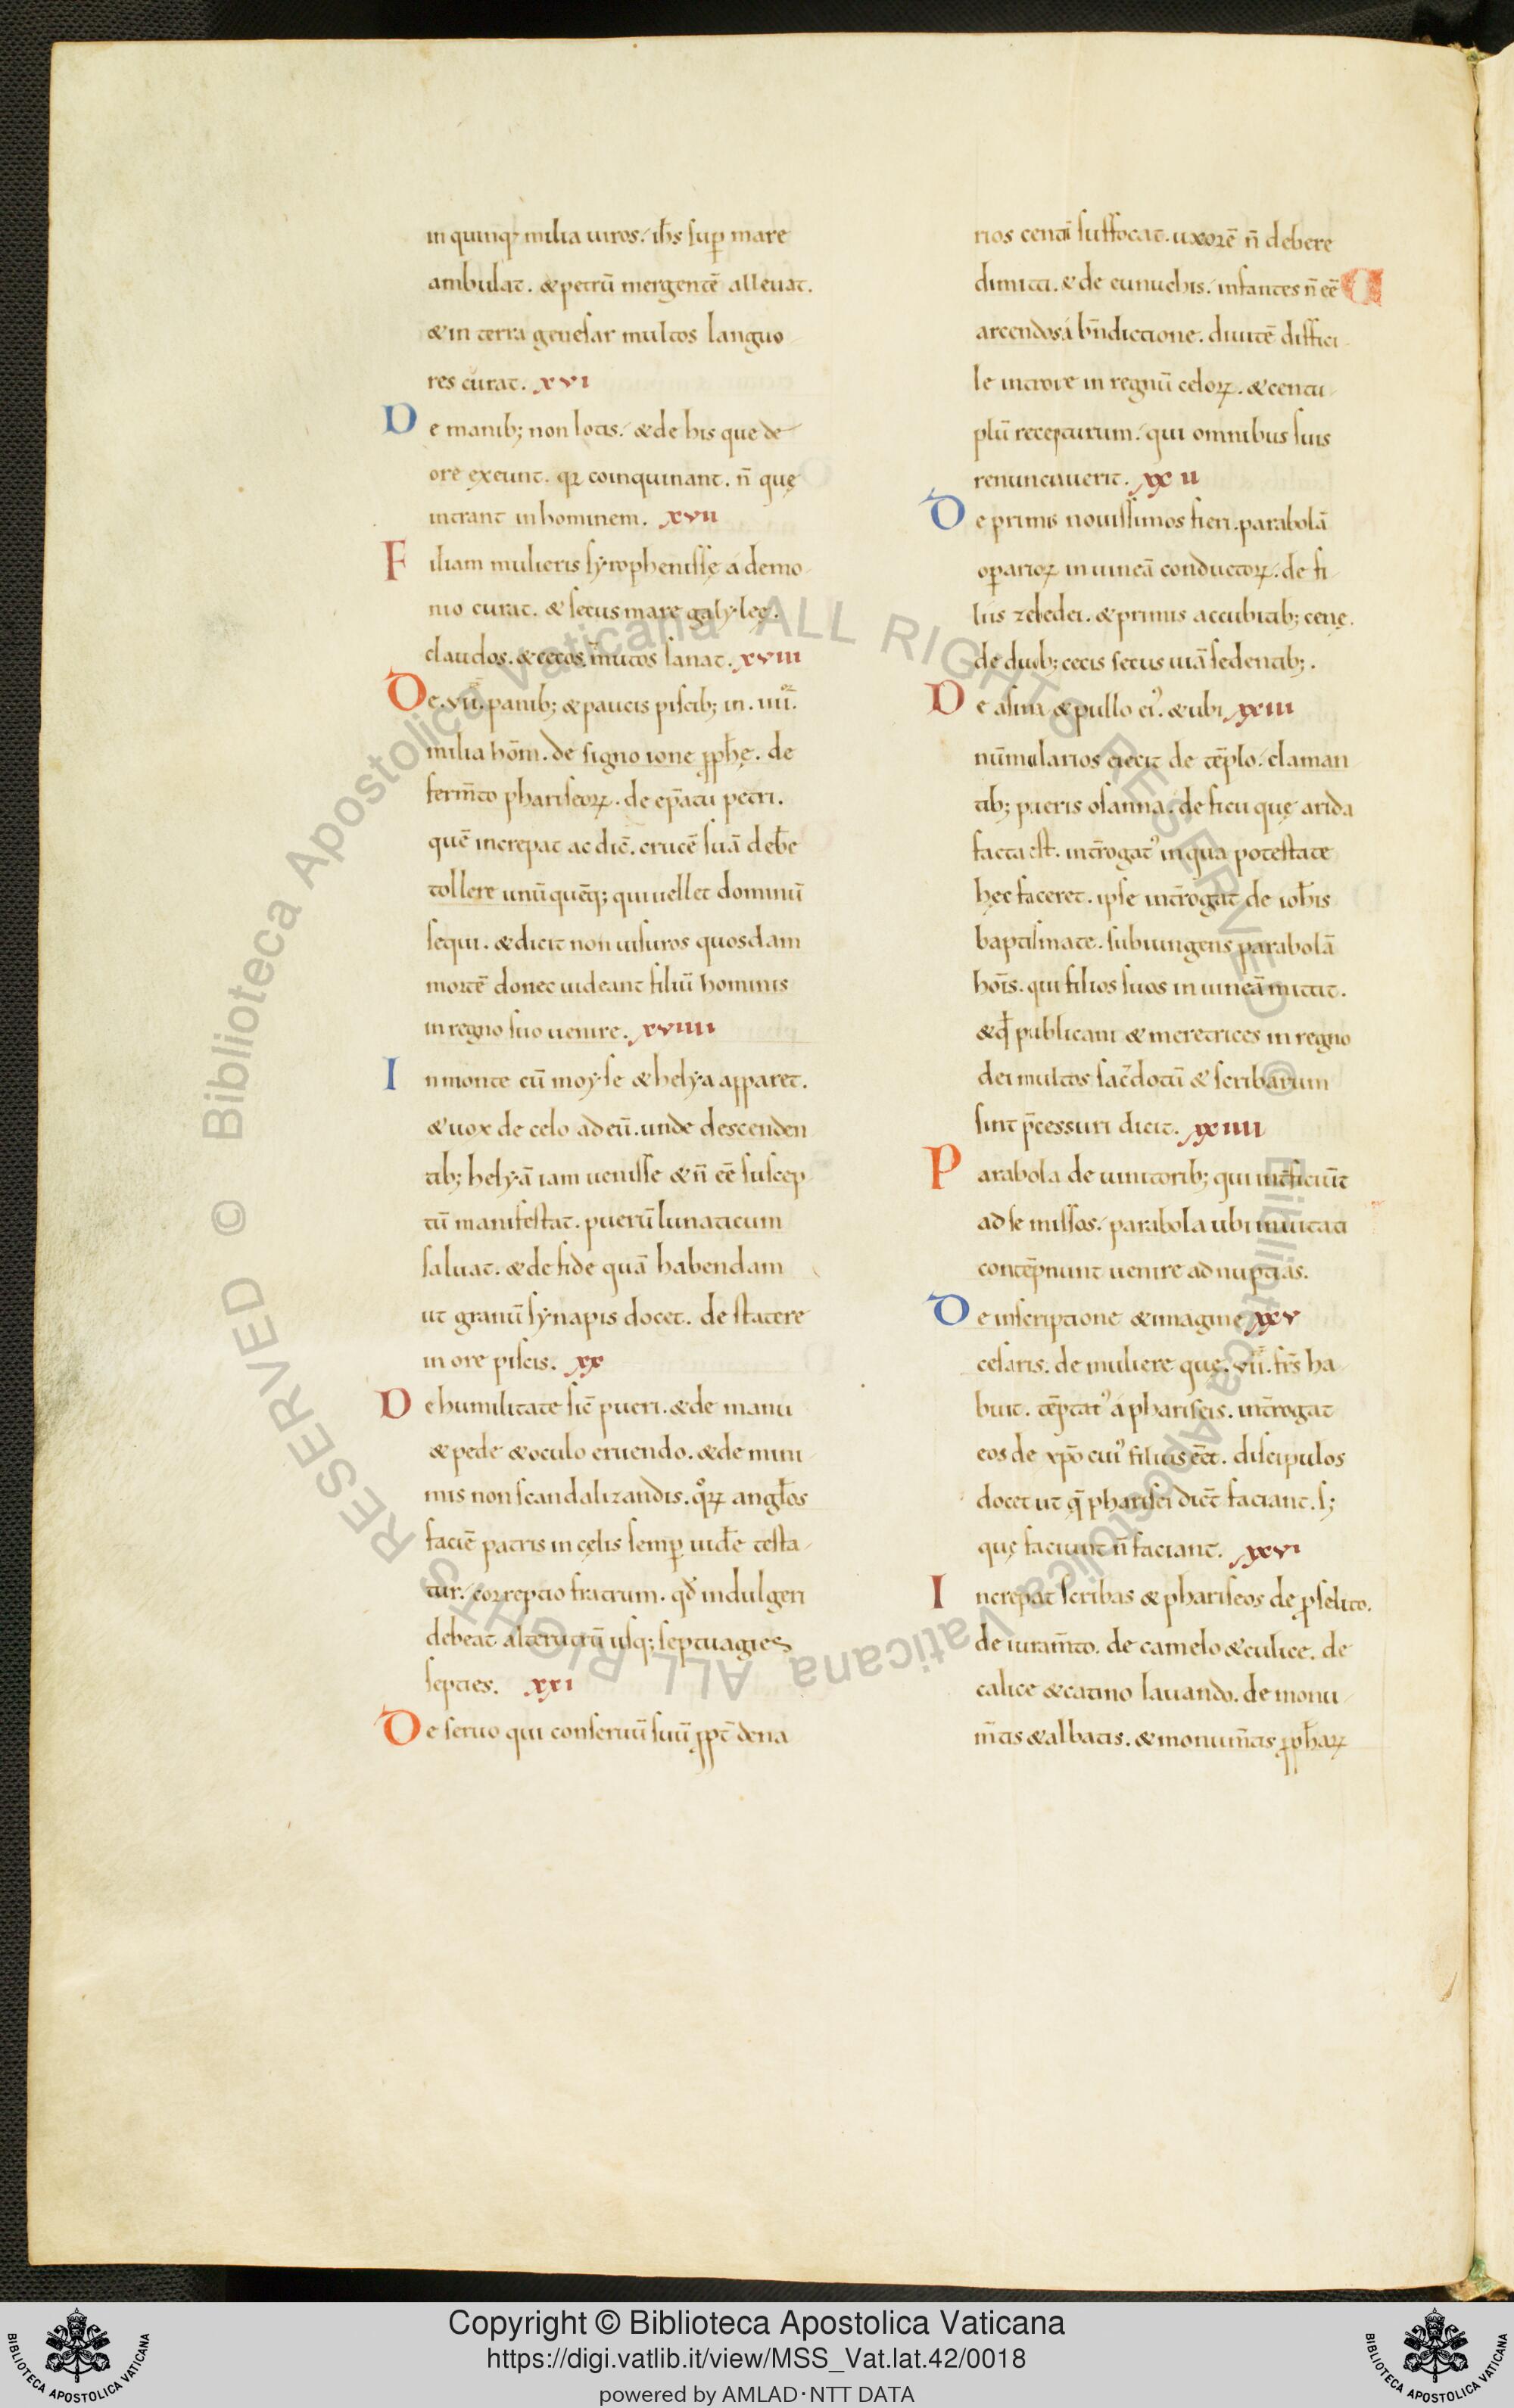 in quinq; milia uiros. ih̅s sup̱ mare
ambulat. & petrū mergentē alleuat.
& in terra genesar multos languo
res curat. xvi
De manib; non lotis. & de his que de
ore exeunt. qꝛ coinquinant. n̄ quę
intrant in hominem. xvii
Filiam mulieris syrophenissę a demo
nio curat. & secus mare galyleę.
claudos. & cecos. mutos sanat. xviii
De .vii. panib; & paucis piscib; in .iiii.
milia hōm. de signo ione ꝓph̅ę. de
ferm̅to phariseoꝝ. de ep̅atu petri.
quē increpat ac dic̅. crucē suā deb̅e
tollere unū quēq; qui uellet dominū
sequi. & dicit non uisuros quosdam
mortē donec uideant filiū hominis
in regno suo uenire. xviiii
In monte cū moyse & helya apparet.
& uox de celo ad eū. unde descenden
tib; helyā iam uenisse & n̄ eē suscep
tū manifestat. puerū lunaticum
saluat. & de fide quā habendam
ut granū synapis docet. de statere
in ore piscis. xx
De humilitate sic̅ pueri. & de manu
& pede & oculo eruendo. & de mini
mis non scandalizandis. qͦꝝ angl̅os
faciē patris in cęlis semp̱ uid̅e testa
tur. correptio fratrum. qd̅ indulgeri
debeat alterutrū usq; septuagies
septies. xxi
De seruo qui conseruū suū ꝓpt̅ dena
rios centū suffocat. uxorē n̄ debere
dimitti. & de eunuchis. infantes n̄ eē
arcendos á bn̅dictione. diuitē diffici
le introire in regnū celoꝝ. & centu
plū recepturum. qui omnibus suis
renuntiauerit. xxii
De primis nouissimos fieri. parabolā
op̱arioꝝ in uineā conductoꝝ. de fi
liis zebedei. & primis accubitib; cenę.
de duob; cecis secus uiā sedentib;.
De asina & pullo ei'. & ubi xxiii
nūmularios eiecit de tēplo. claman
tib; pueris osanna. de ficu quę arida
facta est. int̅rogat' in qua potestate
hęc faceret. ipse int̅rogat de ioh̅is
baptismate. subiungens parabolā
hoīs. qui filios suos in uineā mittit.
& qd̅ publicani & meretrices in regno
dei multos sac̅dotū & scribarum
sint p̅cessuri dicit. xxiiii
Parabola de uinitorib; qui int̅ficiūt
ad se missos. parabola ubi inuitati
contēpnunt uenire ad nuptias.
De inscriptione & imagine xxv
cesaris. de muliere quę .vii. frs̅ ha
buit. tēptat' á phariseis. int̅rogat
eos de xp̅o cui' filius eēt. discipulos
docet ut q̅ pharisei dic̅t faciant. s;
quę faciunt n̄ faciant. xxvi
Increpat scribas & phariseos de ꝓselito.
de iuram̅to. de camelo & culice. de
calice & catino lauando. de monu
m̅tis & albatis. & monum̅tis ꝓph̅aꝝ
Copyright © Biblioteca Apostolica Vaticana
https://digi.vatlib.it/view/MSS_Vat.lat.42/0018
powered by AMLAD·NTT DATA